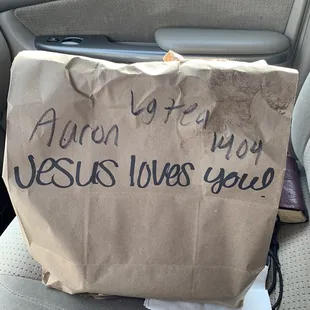 Lg tea
Aaron
1404
Jesus loves you!